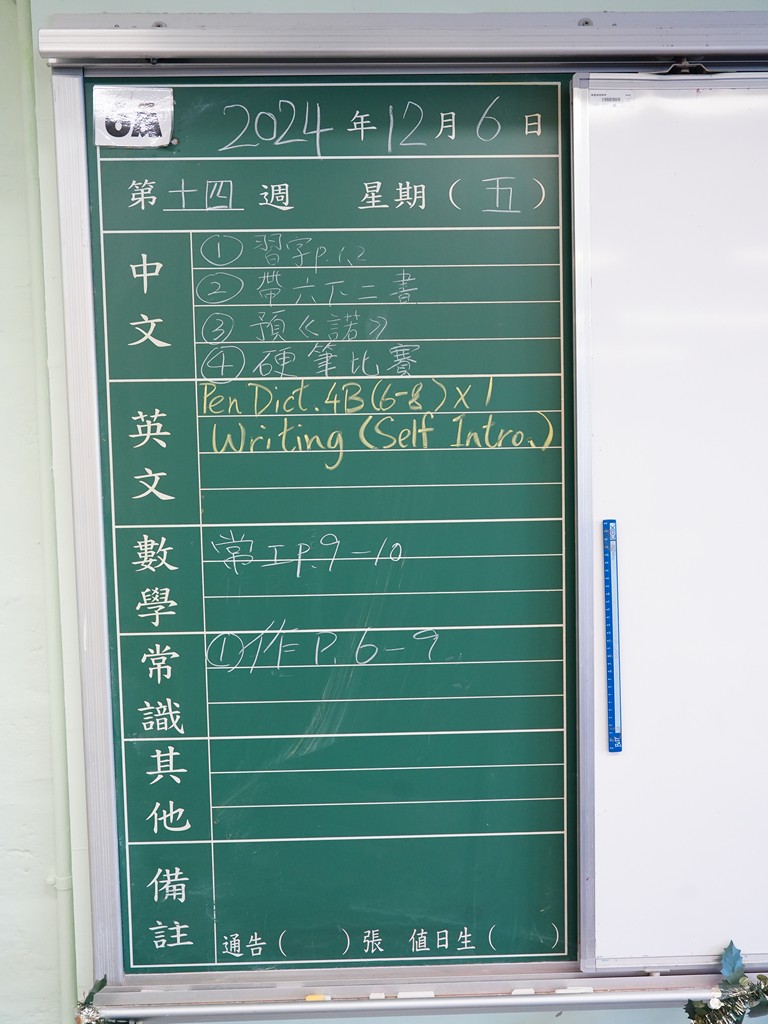 6A
2024 年 12 月 6 日
第 十四 週 星期 ( 五 )
中文
① 習字p.1,2
② 帶六下二書
③ 預《諾》
④ 硬筆比賽
英文
Pen Dict. 4B (6-8) x 1
Writing (Self Intro.)
數學
常工P.9-10
常識
① 作 P. 6-9
其他
備註
通告 ( ) 張 值日生 ( )